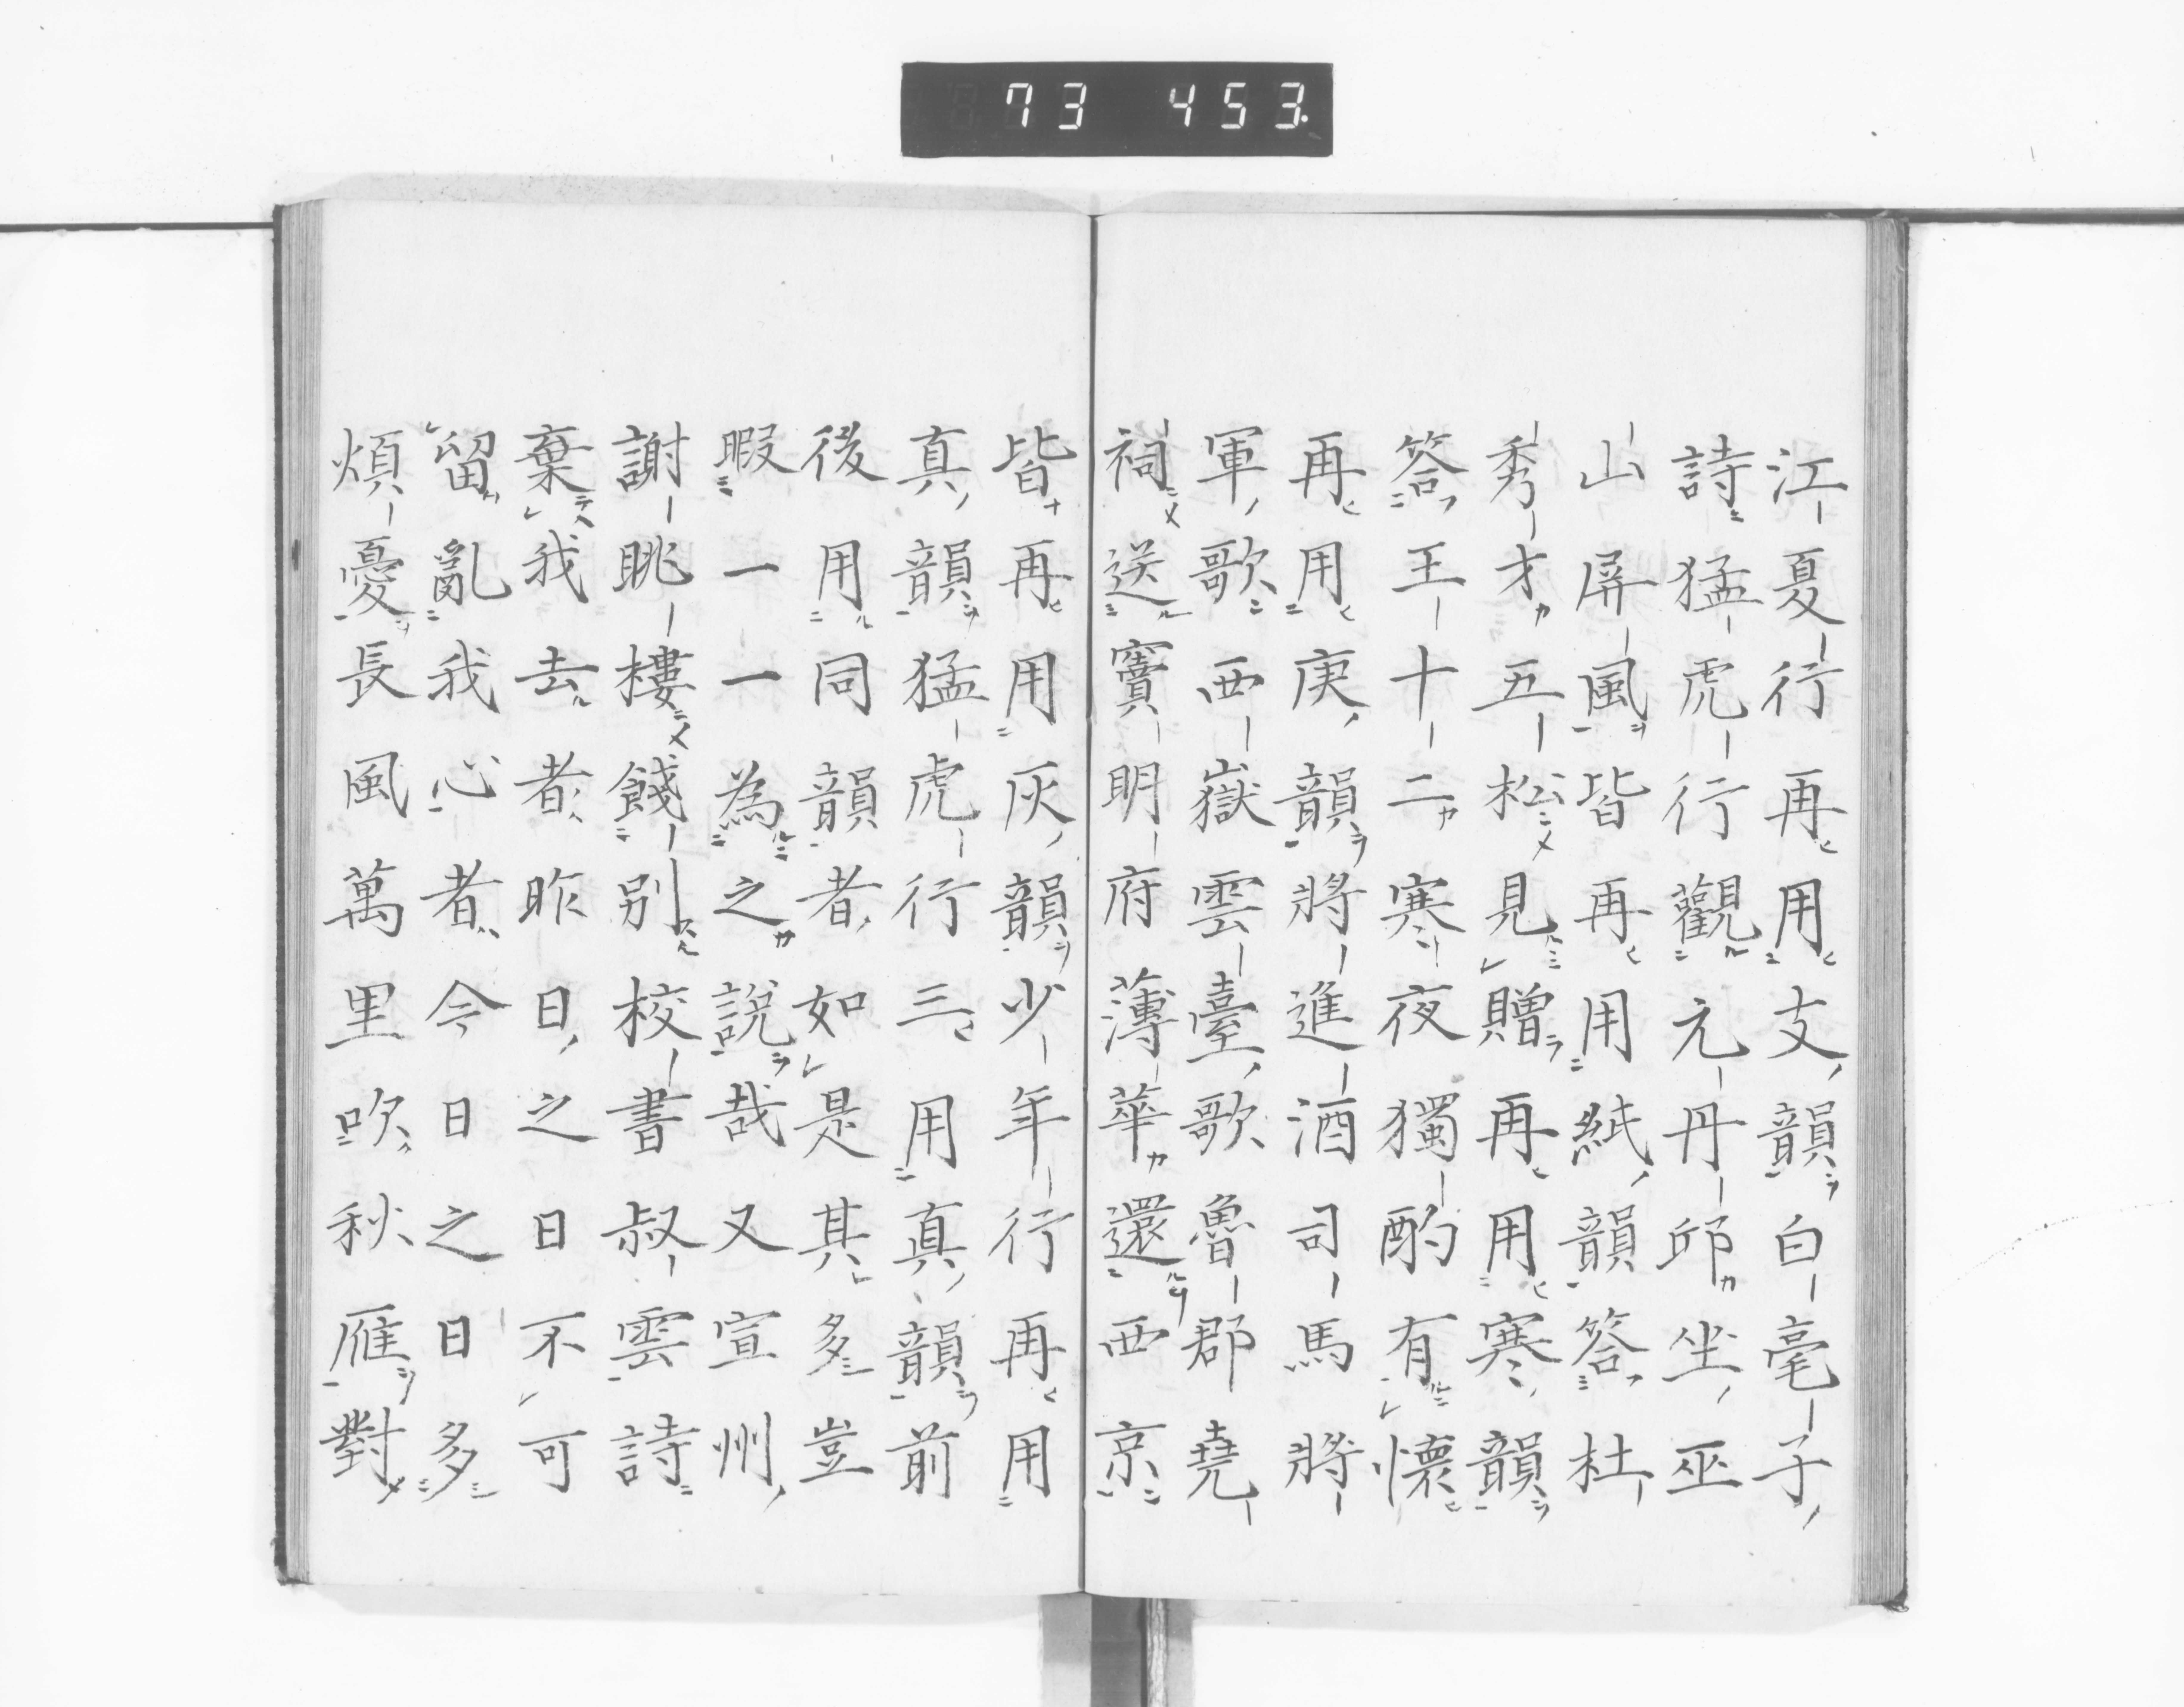 73 453.
江夏行再用支韻白毫子
詩猛虎行觀元丹邱坐巫
山屏風皆再用紙韻答杜
秀才五松見贈再用寒韻
答王十二寒夜獨酌有懷
再用庚韻將進酒司馬將
軍歌西嶽雲臺歌魯郡堯
祠送竇明府薄華還西京
皆再用灰韻少年行再用
真韻猛虎行三用真韻前
後用同韻者如是其多豈
暇一一為之說哉又宣州
謝眺樓餞別校書叔雲詩
棄我去者昨日之日不可
留亂我心者今日之日多
煩憂長風萬里吹秋雁對